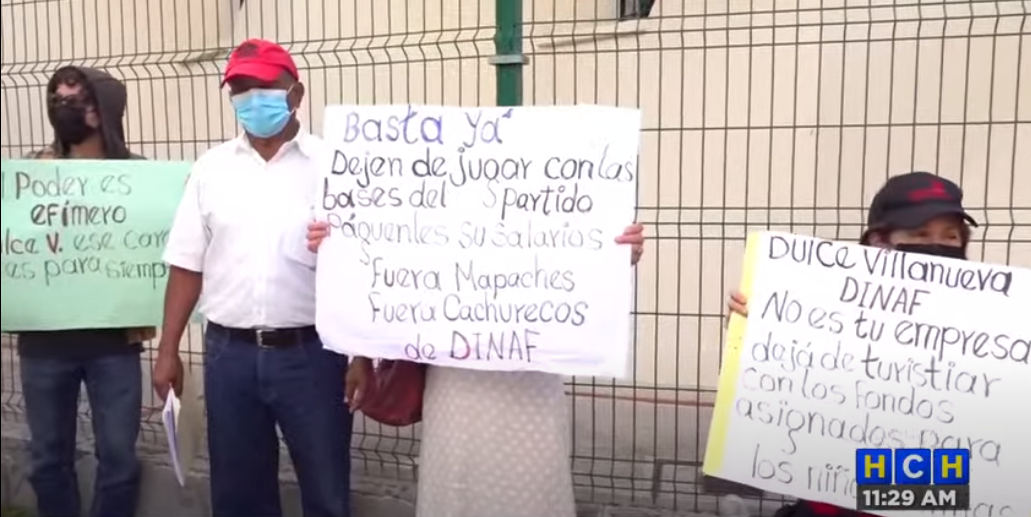 Poder es
efímero
lce V. ese car
es para siemp
Basta Ya
Dejen de jugar con las
bases del Partido
Páguenles su salarios
Fuera Mapaches
Fuera Cachurecos
de DINAF
Dulce Villanueva
DINAF
No es tu empresa
dejá de turistiar
con los fondos
asignados para
los niñ
HCH
11:29 AM